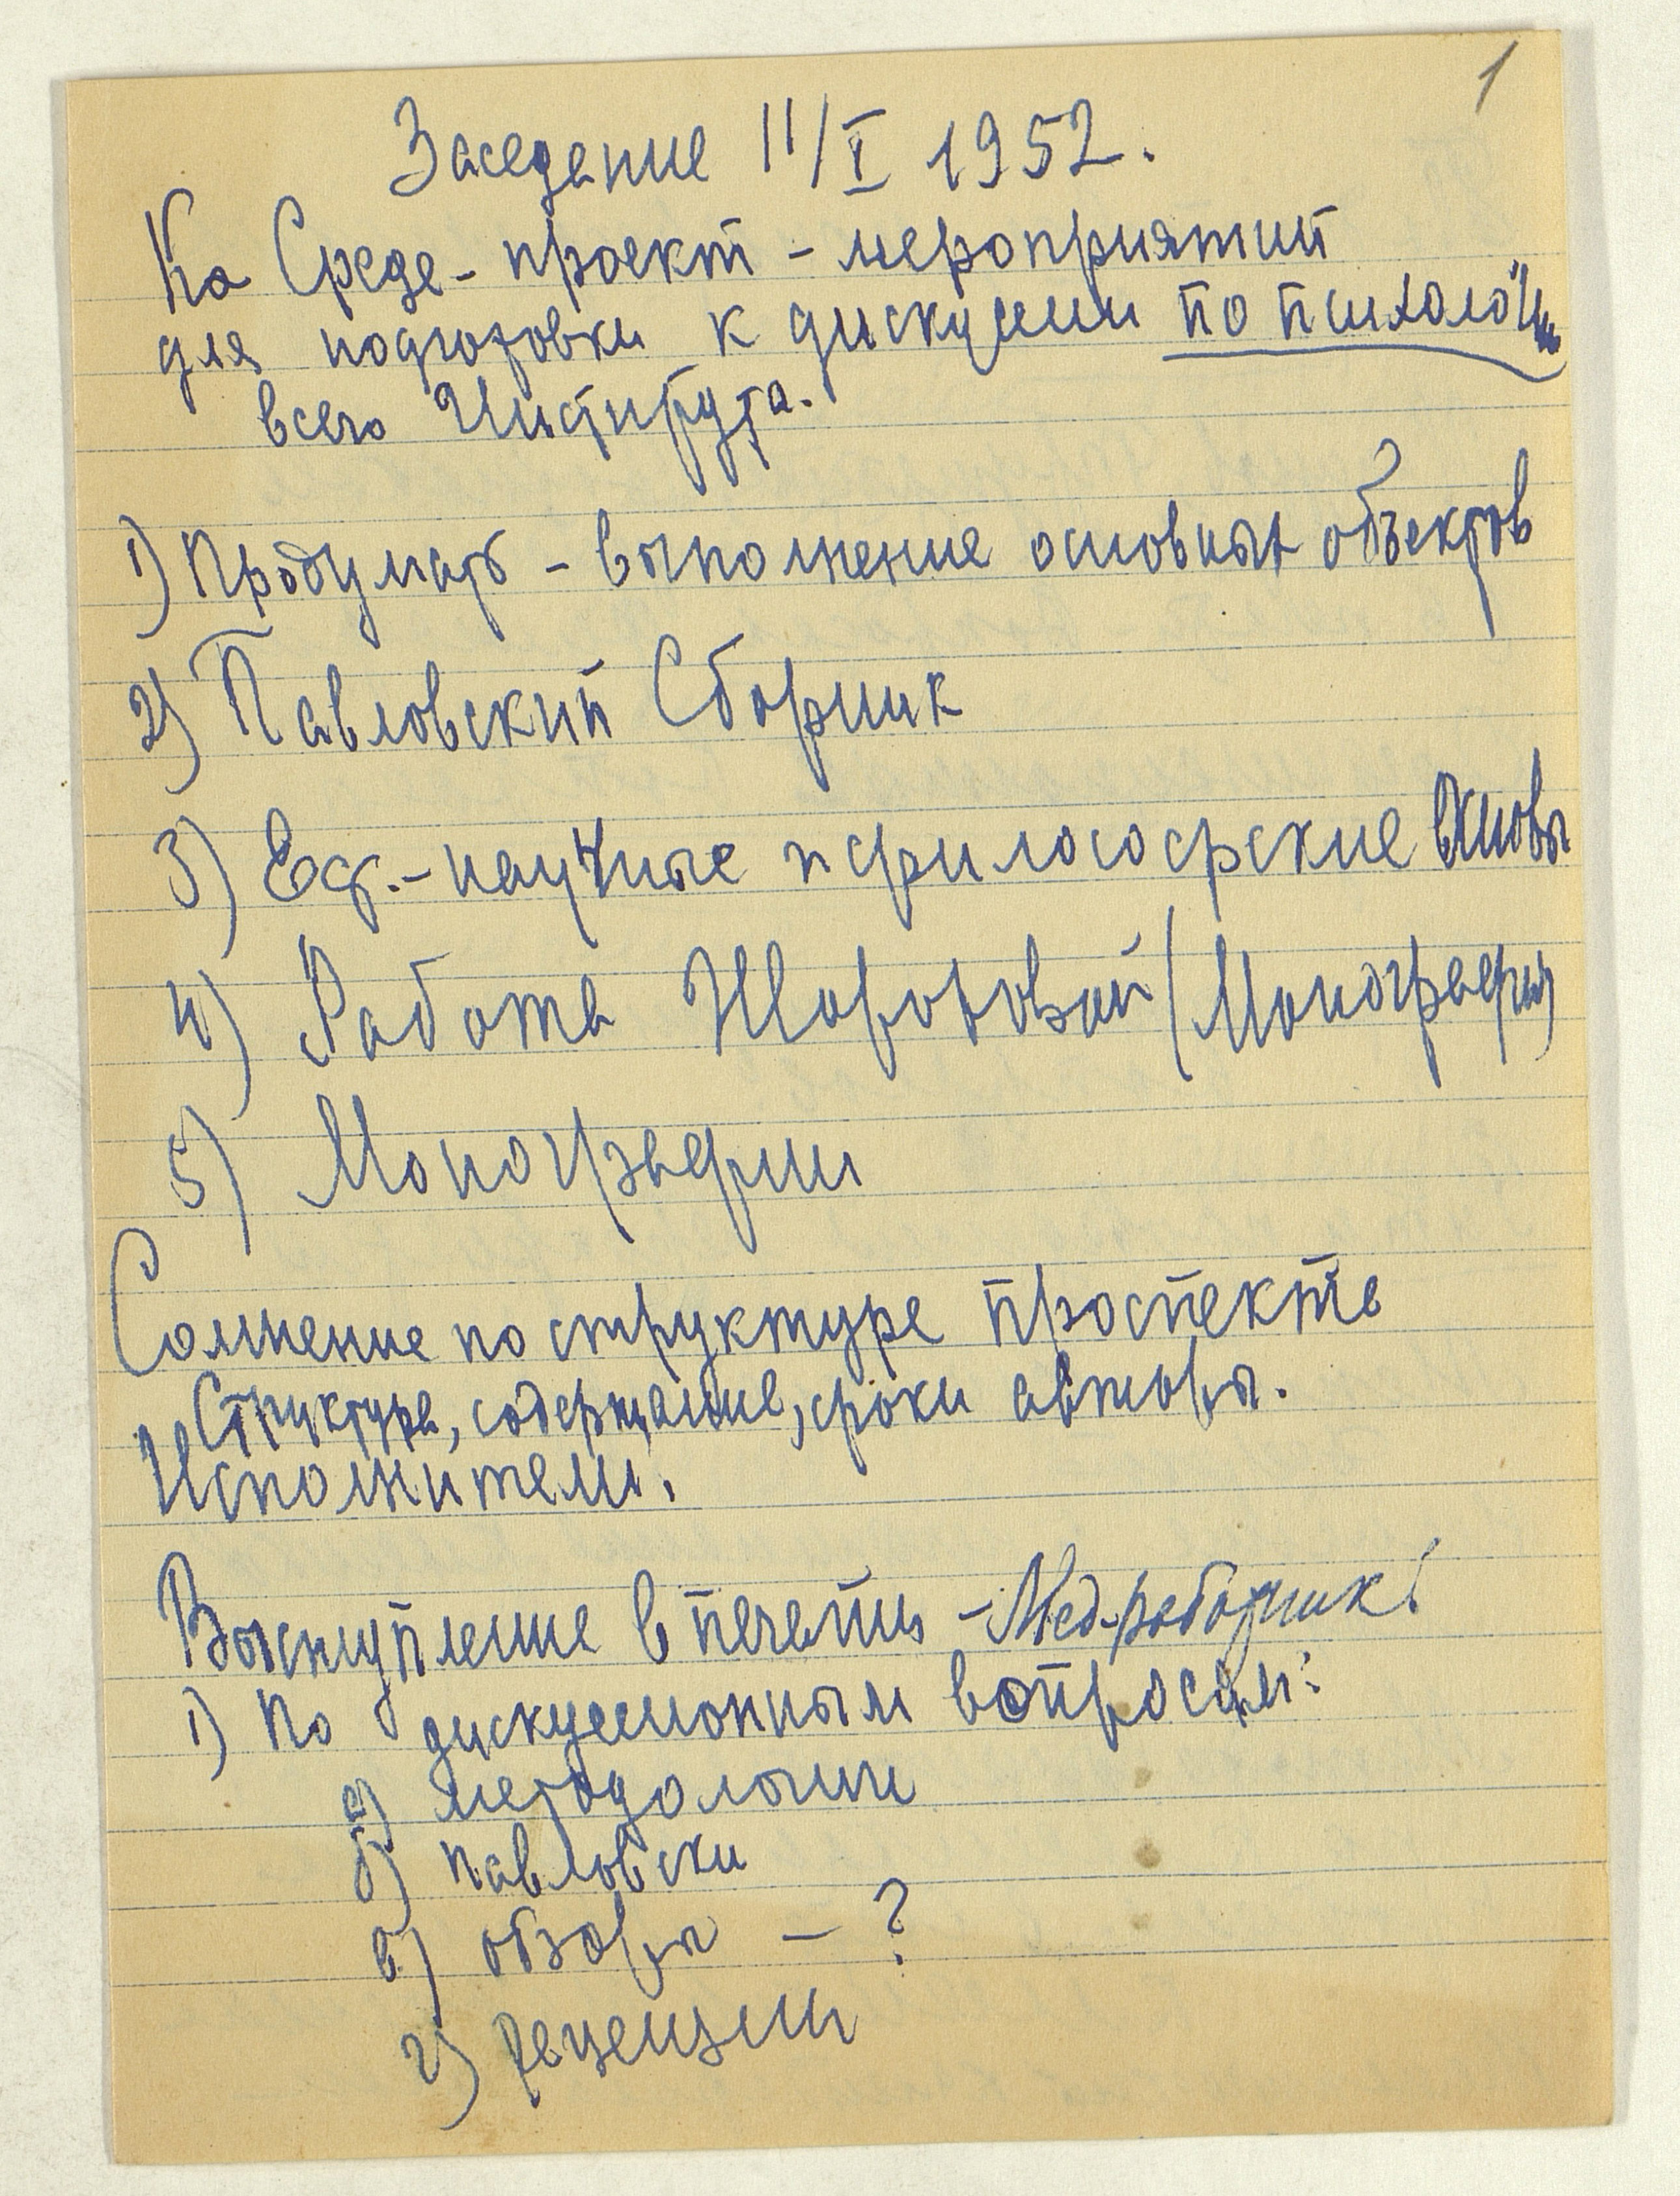 1
Заседание 11/I 1952.
На Среде - проект - мероприятий
для подготовки к дискуссии по психологии
всего Института.
1) Продумать - выполнение основных объектов
2) Павловский Сборник
3) Ест.-научные и философские основы
4) Работа Шороховой (Монография)
5) Монографии
по структуре проспекта
Структура, содержание, сроки авторы.
Исполнители.
Выступление в печати - Мед-работник!
1) По дискуссионным вопросам:
а) методологии
б) павловски
в) обзоры - ?
г) рецензии